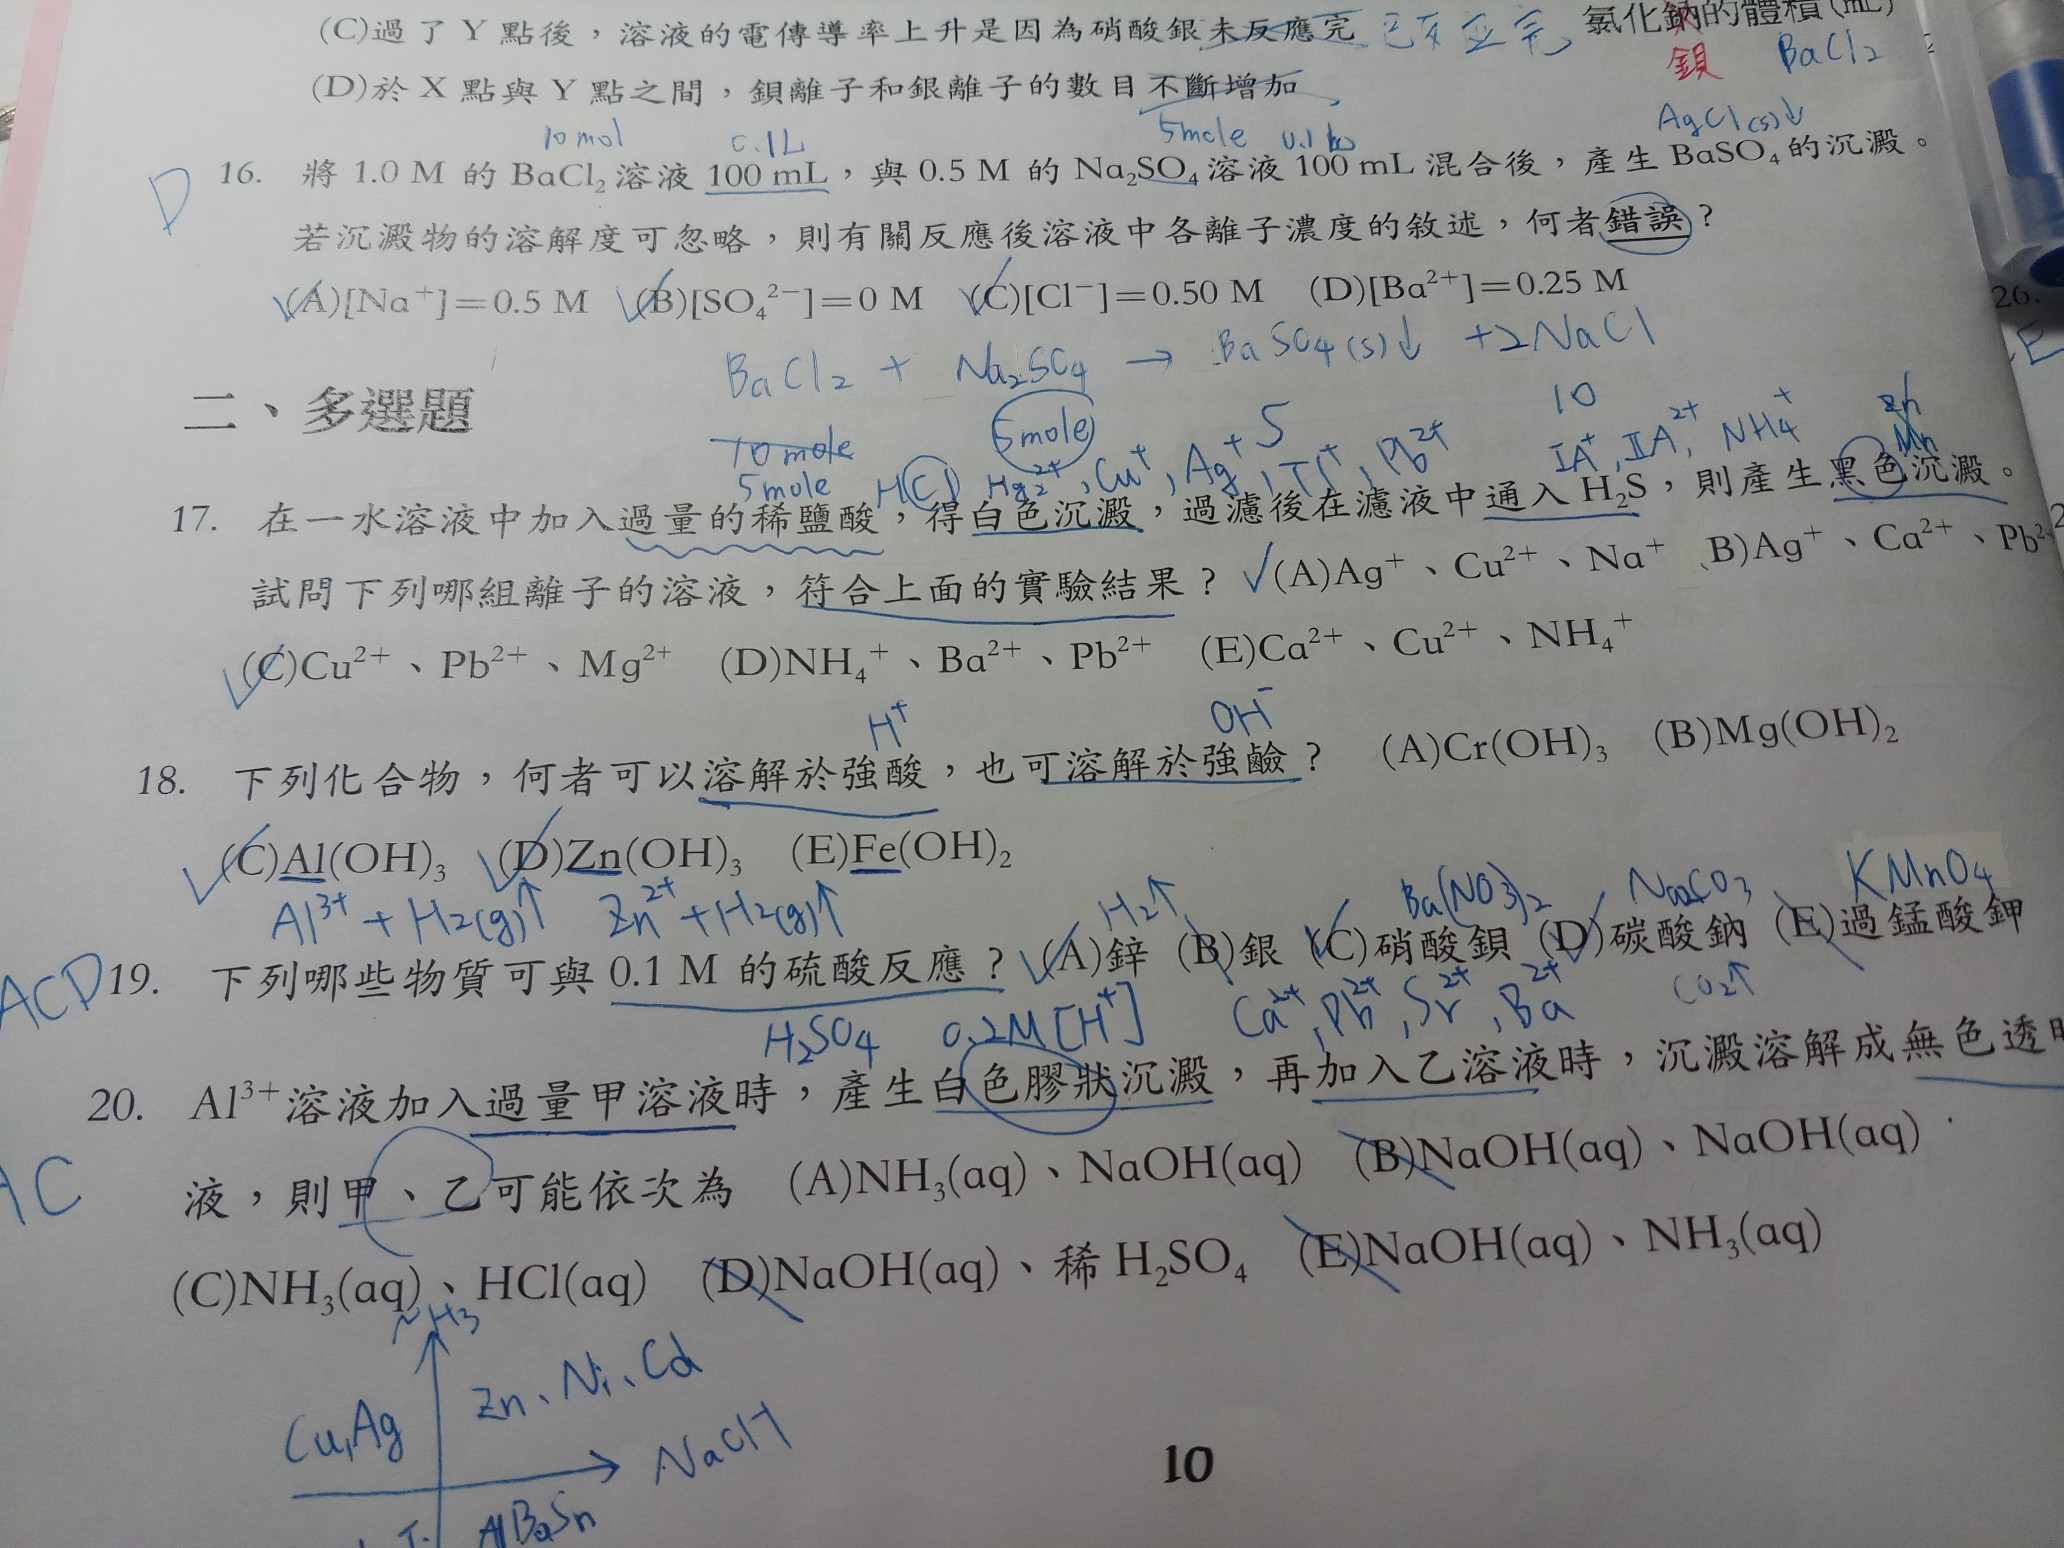 (C)過了 Y 點後，溶液的電傳導率上升是因為硝酸銀未反應完 已反應完
氯化鈉的體積(mL)
鋇 BaCl2
(D)於 X 點與 Y 點之間，鋇離子和銀離子的數目不斷增加
10 mol 0.1L 5mole 0.1L AgCl(s)↓
D 16. 將 1.0 M 的 BaCl₂溶液 100 mL，與 0.5 M 的 Na₂SO₄溶液 100 mL 混合後，產生 BaSO₄的沉澱。
若沉澱物的溶解度可忽略，則有關反應後溶液中各離子濃度的敘述，何者錯誤？
(A)[Na⁺]＝0.5 M (B)[SO₄²⁻]＝0 M (C)[Cl⁻]＝0.50 M (D)[Ba²⁺]＝0.25 M
26.
E
BaCl2 + Na2SO4 → BaSO4(s)↓ +2NaCl
二、多選題
10mole 5mole 5 10
5mole HCl Hg2²⁺, Cu⁺, Ag⁺, Tl⁺, Pb²⁺ IA⁺, IIA²⁺, NH4⁺ Zn Mn
17. 在一水溶液中加入過量的稀鹽酸，得白色沉澱，過濾後在濾液中通入 H₂S，則產生黑色沉澱。
試問下列哪組離子的溶液，符合上面的實驗結果？ (A)Ag⁺、Cu²⁺、Na⁺ B)Ag⁺、Ca²⁺、Pb²
(C)Cu²⁺、Pb²⁺、Mg²⁺ (D)NH₄⁺、Ba²⁺、Pb²⁺ (E)Ca²⁺、Cu²⁺、NH₄⁺
H⁺ OH⁻
18. 下列化合物，何者可以溶解於強酸，也可溶解於強鹼？ (A)Cr(OH)₃ (B)Mg(OH)₂
(C)Al(OH)₃ (D)Zn(OH)₃ (E)Fe(OH)₂
Al³⁺ + H2(g)↑ Zn²⁺+H2(g)↑ H2↑ Ba(NO3)2 Na2CO3 KMnO4
ACD 19. 下列哪些物質可與 0.1 M 的硫酸反應？ (A)鋅 (B)銀 (C)硝酸鋇 (D)碳酸鈉 (E)過錳酸鉀
H2SO4 0.2M[H⁺] Ca²⁺, Pb²⁺, Sr²⁺, Ba²⁺ CO2↑
20. Al³⁺溶液加入過量甲溶液時，產生白色膠狀沉澱，再加入乙溶液時，沉澱溶解成無色透明
AC 液，則甲、乙可能依次為 (A)NH₃(aq)、NaOH(aq) (B)NaOH(aq)、NaOH(aq)
(C)NH₃(aq)、HCl(aq) (D)NaOH(aq)、稀 H₂SO₄ (E)NaOH(aq)、NH₃(aq)
NH3
Cu,Ag Zn、Ni、Cd
NaOH
Al Ba Sn
10